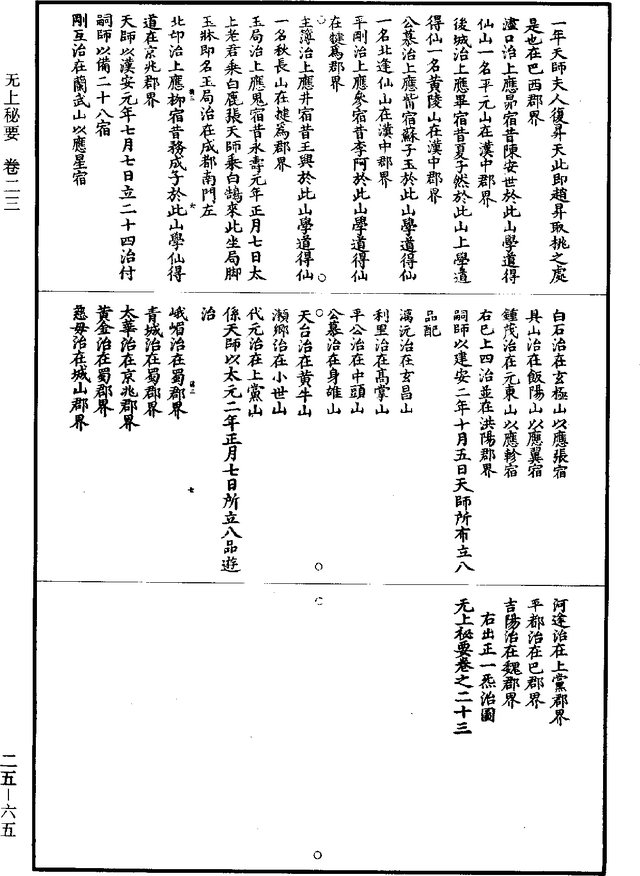 一年天師夫人復昇天此即趙昇取桃之處
是也在巴西郡界
濜口治上應昴宿昔陳安世於此山學道得
仙山一名平元山在漢中郡界
後城治上應畢宿昔夏子然於此山上學道
得仙一名黃陵山在漢中郡界
公慕治上應觜宿蘇子玉於此山學道得仙
一名北逢仙山在漢中郡界
平剛治上應參宿昔李阿於此山學道得仙
在犍為郡界
主簿治上應井宿昔王興於此山學道得仙
一名秋長山在犍為郡界
玉局治上應鬼宿昔永壽元年正月七日太
上老君乘白鹿張天師乘白鵠來此坐局脚
玉牀即名玉局治在成都南門左
北邙治上應柳宿昔務成子於此山學仙得
道在京兆郡界
天師以漢安元年七月七日立二十四治付
嗣師以備二十八宿
剛互治在蘭武山以應星宿
白石治在玄極山以應張宿
具山治在飯陽山以應翼宿
鍾茂治在元東山以應軫宿
右巳上四治並在洪陽郡界
嗣師以建安二年十月五日天師所布立八
品配
漓沅治在玄昌山
利里治在高掌山
平公治在中頭山
公慕治在身雄山
天台治在黃牛山
瀨鄉治在小世山
代元治在上黨山
係天師以太元二年正月七日所立八品遊
治
峨嵋治在蜀郡界
青城治在蜀郡界
太華治在京兆郡界
黃金治在蜀郡界
慈母治在城山郡界
河逢治在上黨郡界
平都治在巴郡界
吉陽治在魏郡界
右出正一炁治圖
无上秘要卷之二十三
无上秘要 卷二三
二五-六五